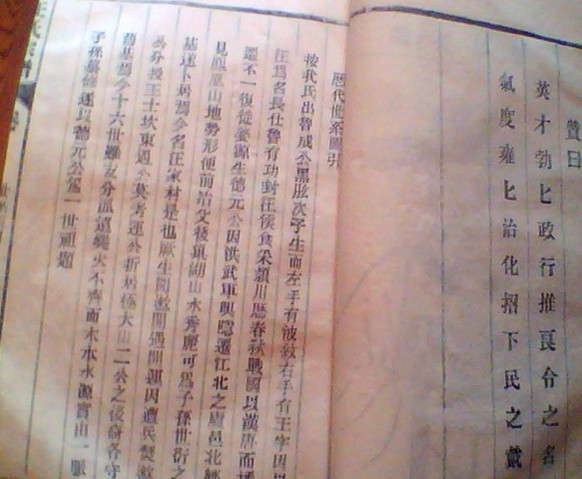 贊曰
英才勃匕政行推良令之名
氣度雍匕治化招下民之戴
歷代世系圖引
按我氏出魯成公黑肱次子生而左手有波紋右手有王字因以
汪爲名長仕魯有功封汪侯食采潁川歷春秋戰國以漢唐而
遷不一復徙婺源生德元公因洪武軍興隱遷江北之廬邑北
見鳳凰山地勢形便前治父後鎮湖山水秀麗可爲子孫世衍之
基遂卜居焉今名汪家村是也厥生開遨開遇開運因遭兵燹遨
公分授王十坎東遇公莫考運公析居楊大山二公之後裔各守
舊基焉今十六世雖支分派遠繩火不齊而木本水源實出一脈
子孫修譜遂以德元公爲一世祖題
汪氏宗譜